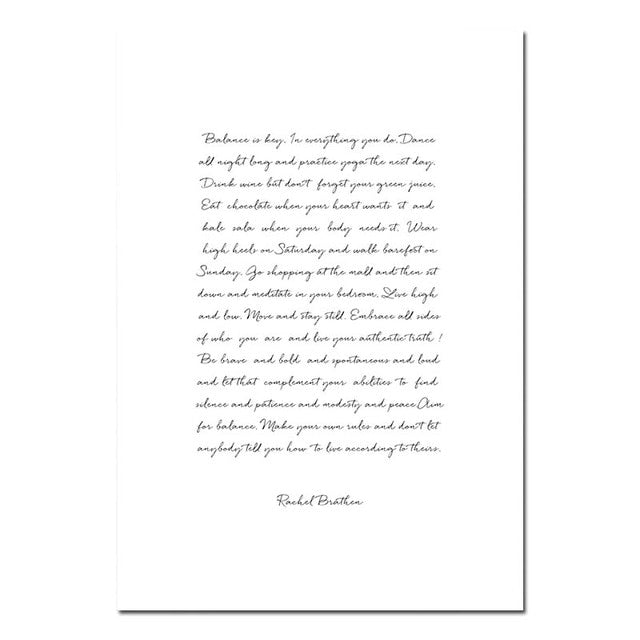 Balance is key. In everything you do. Dance
all night long and practice yoga the next day.
Drink wine but don't forget your green juice.
Eat chocolate when your heart wants it and
kale sala when your body needs it. Wear
high heels on Saturday and walk barefest on
Sunday. Go shopping at the mall and then sit
down and meditate in your bedroom. Live high
and low. Move and stay still. Embrace all sides
of who you are and live your authentic truth !
Be brave and bold and spontaneous and loud
and let that complement your abilities to find
silence and patience and modesty and peace. Aim
for balance. Make your own rules and don't let
anybody tell you how to live according to theirs.
Rachel Brathen